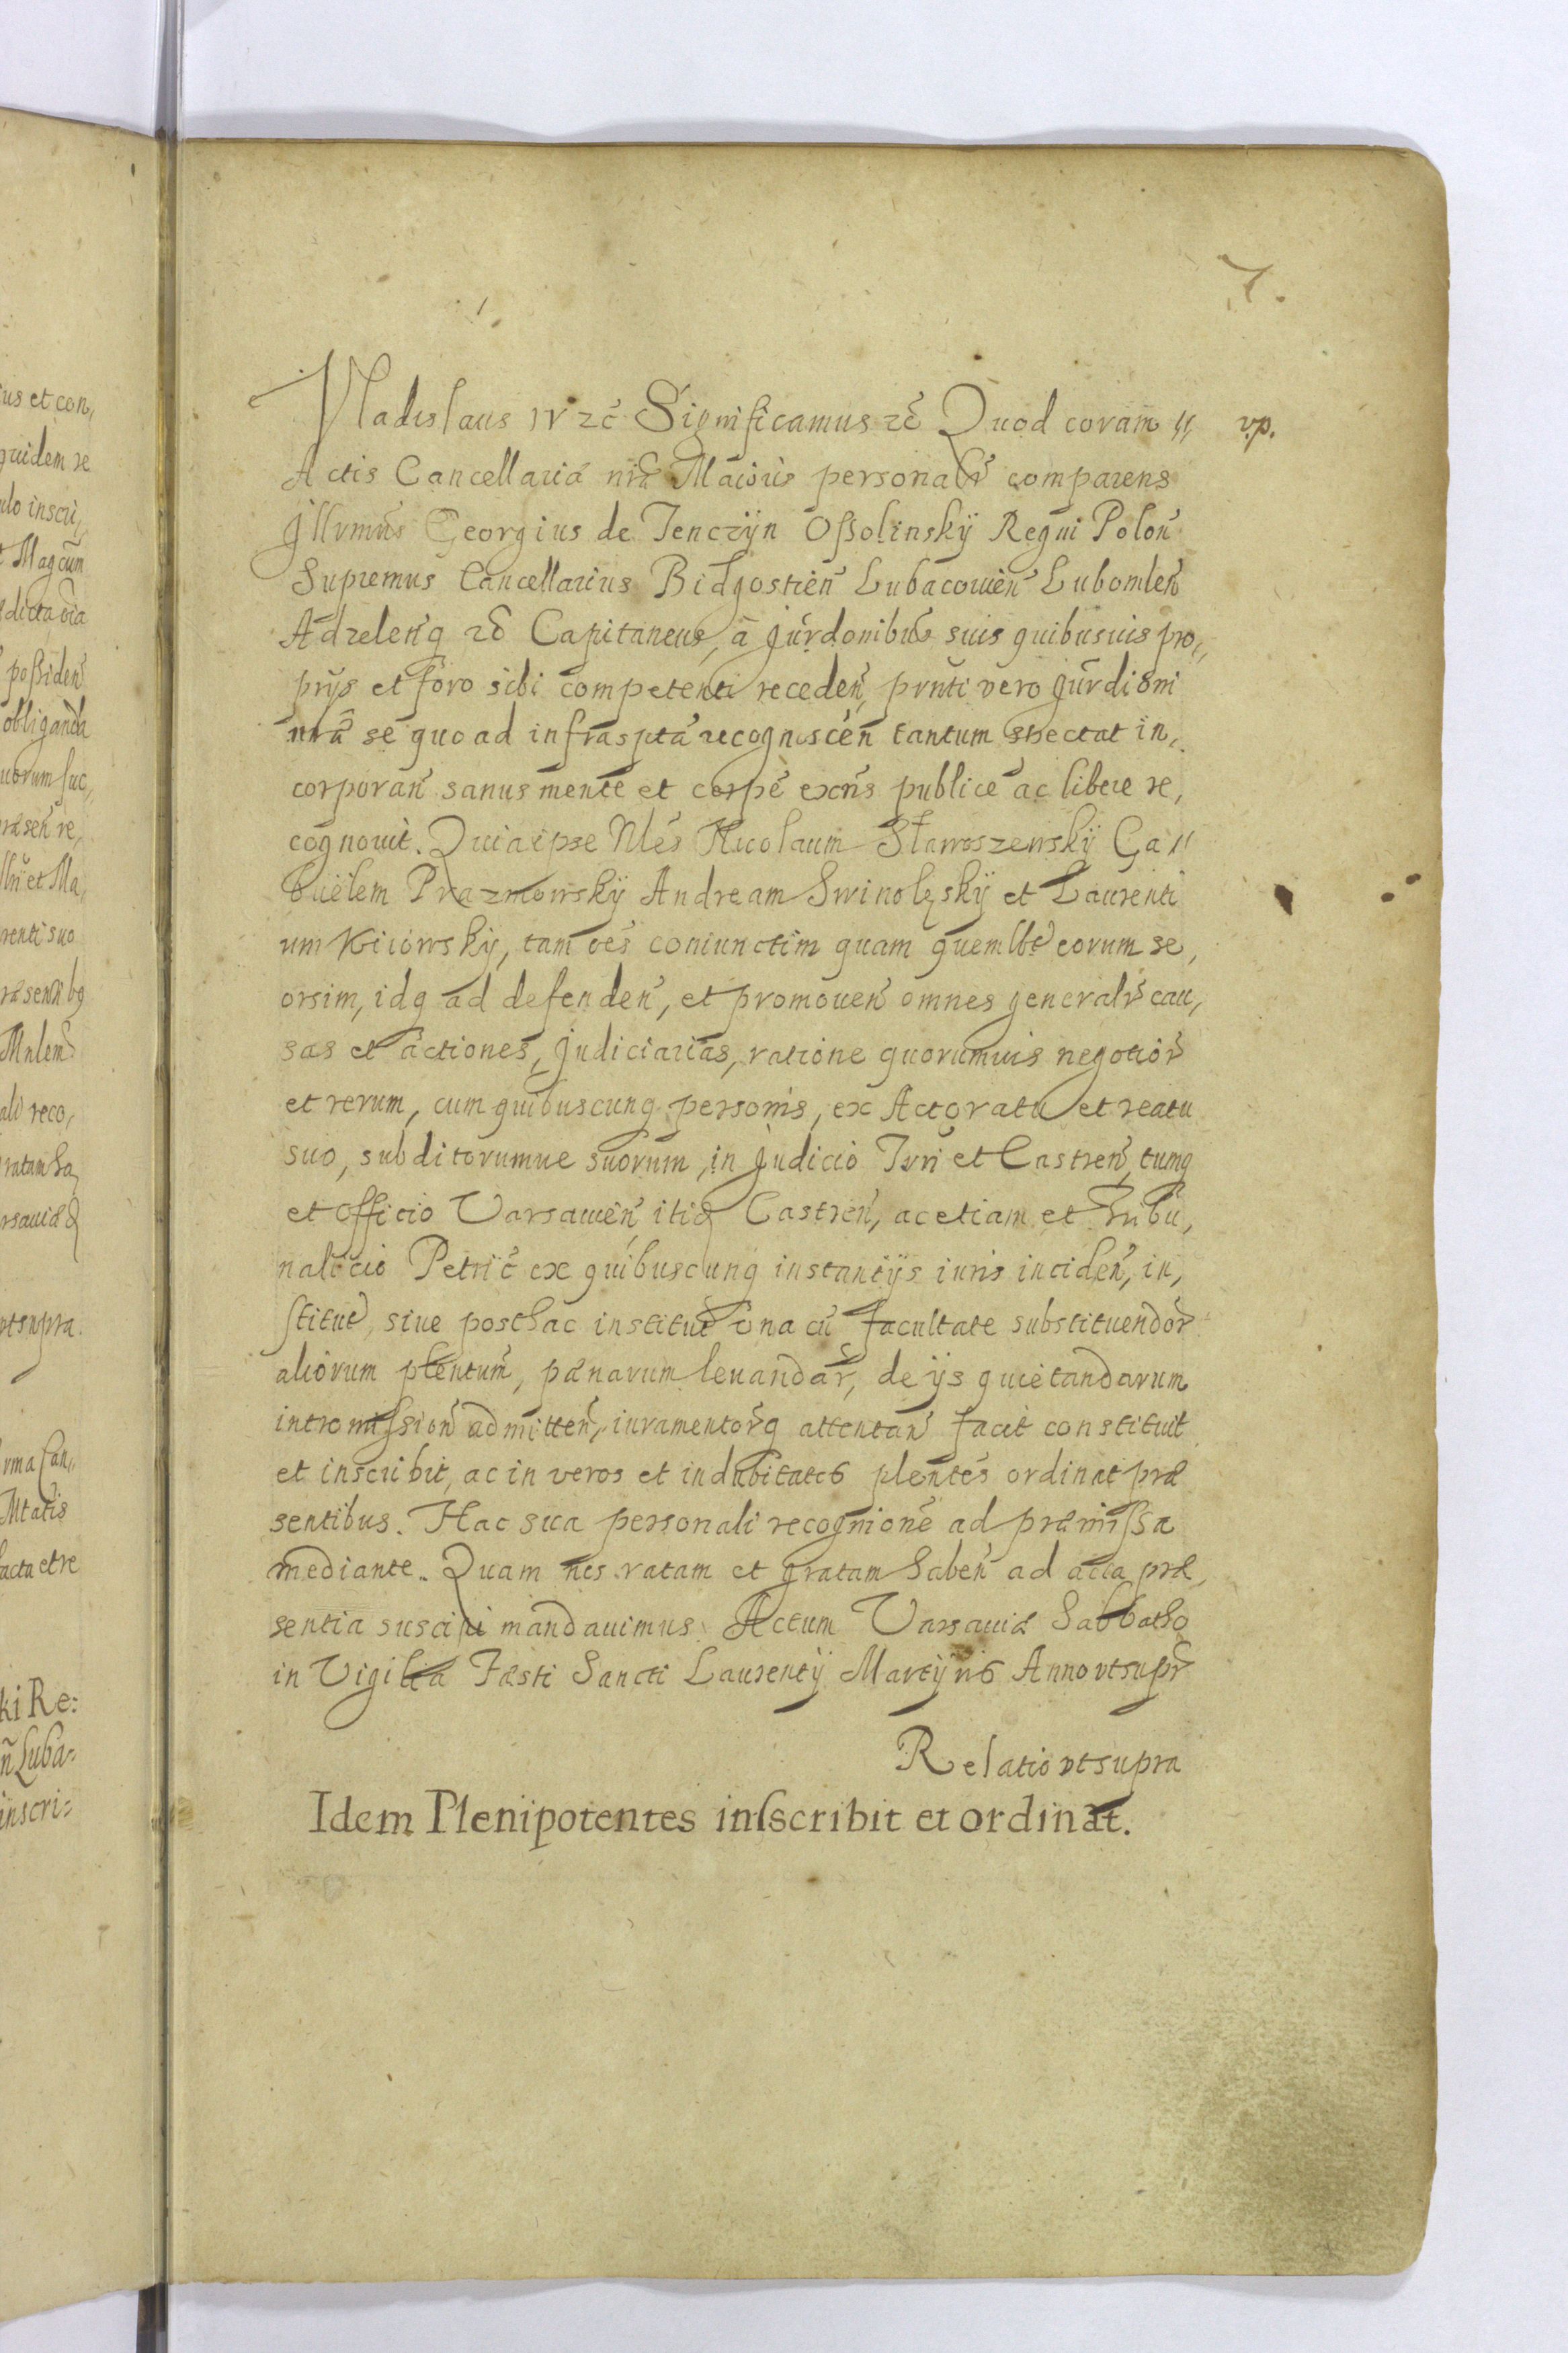 7.
Vladislaus IV etc̃ Significamus etc̃ Quod coram
v.p.
Actis Cancellariæ nrã Maioris personalr̃ comparens
Jllvmũs Georgius de Tenczÿn Oßolinskÿ Regni Polon̄
Supremus Cancellarius Bidgostien̄ Lubacouien̄ Lubomlen̄
Adzelen̄q etc̃ Capitaneus, a Jurdonibus suis quibusuis pro,,
prijs et foro sibi competenti receden̄, prnti vero Jurdioni
nrã se quo ad infrasptã recognoscen̄ tantum spectat in,
corporan̄ sanus mente et corpẽ exñs publice ac libere re,
cognouit. Quia ipse Nlẽs Nicolaum Starroszewskÿ Ga,,
brielem Prazmowskÿ Andream Swinolzskÿ et Laurenti
um Kiiowskÿ, tam oẽs coniunctim quam quemlbt eorum se,
orsim, idq ad defenden̄, et promouen̄ omnes generalr̃ cau,
sas et actiones, Judiciarias, ratione quorumuis negotior̃
et rerum, cum quibuscunq personis, ex Actoratu et reatu
suo, subditorumue suorum, in Judicio Trri et Castren̄, tumq
et officio Varsauien̄ itid Castren̄, ac etiam et Tribu,
nalicio Petric̃ ex quibuscunq instantijs iuris inciden̄, in,
stitut̃, siue posthac instituet̃ vna cũ facultate substituendor̃
aliorum plentum̃, pænarum leuandar̃, de ijs quietandarum
intromißion̄ admitten̄, iuramentor̃q attentan̄ facit constituit
et inscribit, ac in veros et indubitatos plentẽs ordinat præ
sentibus. Hac sua personali recognionẽ ad præmißa
mediante. Quam nos ratam et gratam haben̄ ad acta præ,
sentia suscipi mandauimus. Actum Varsauiæ Sabbatho
in Vigilia Fæsti Sancti Laurentij Martÿris Anno vt supr̃
Relatio vt supra
Idem Plenipotentes inscribit et ordinat.